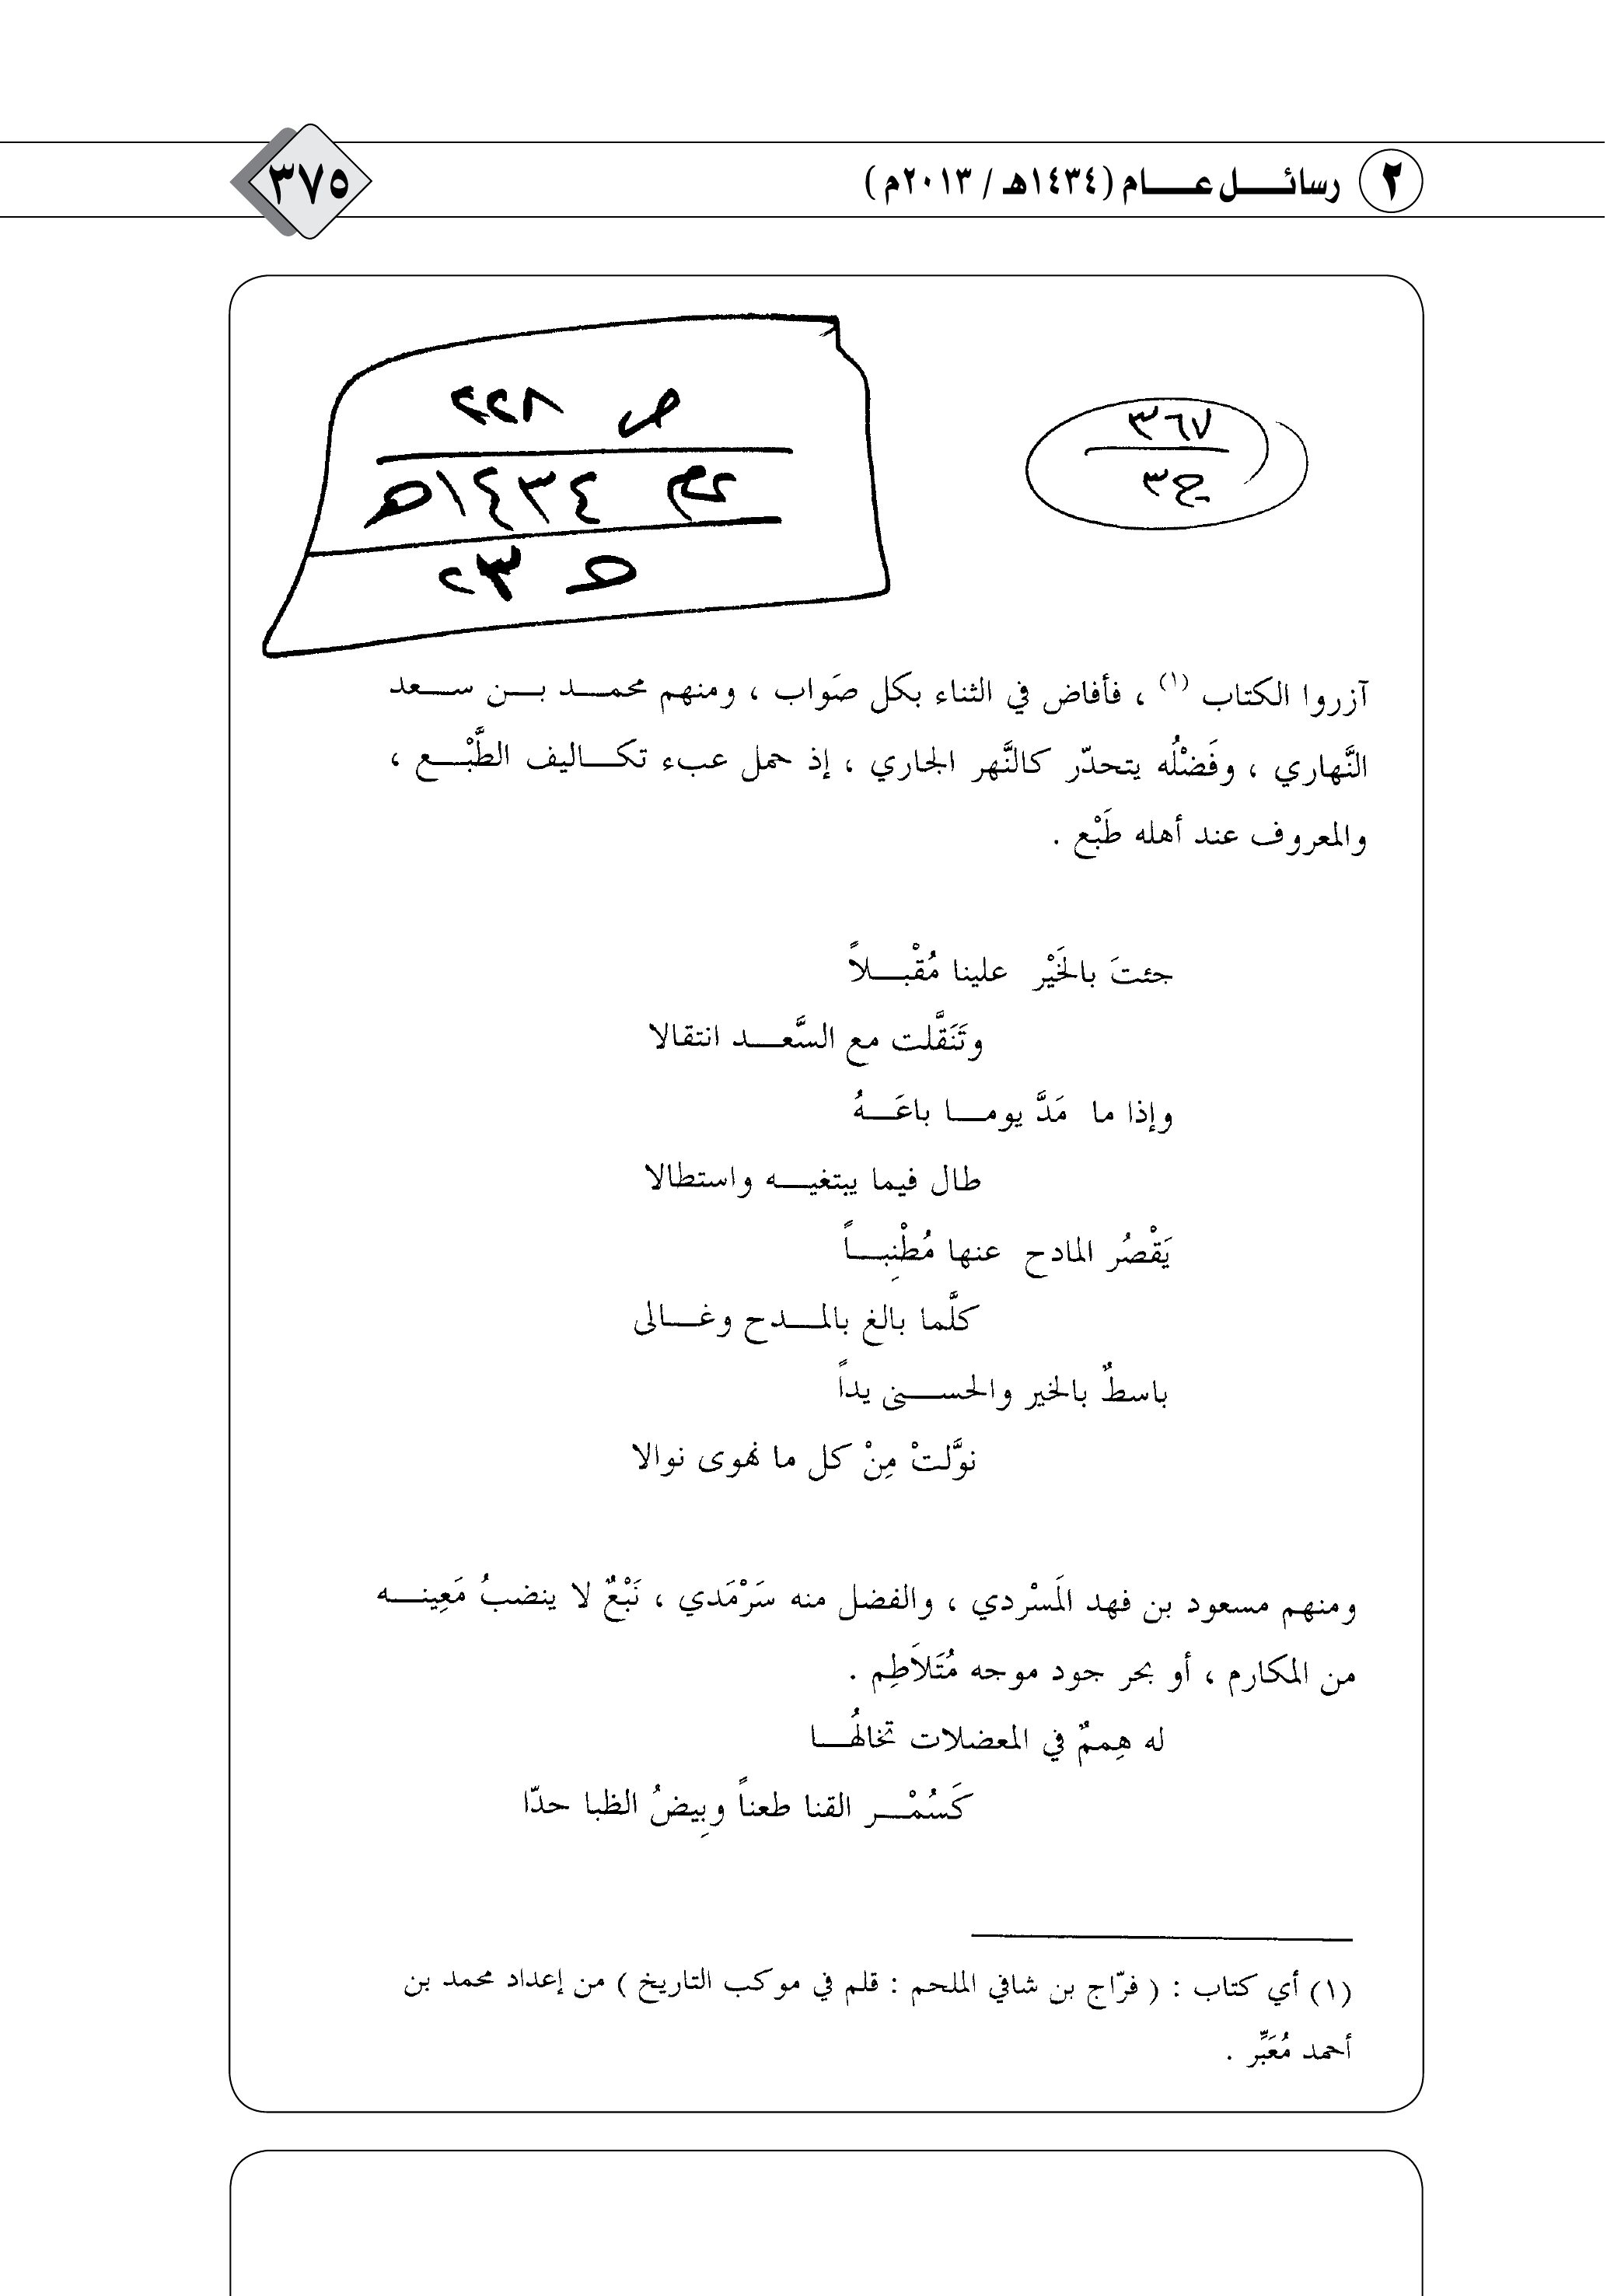 ٢ رسائل عام (١٤٣٤هـ / ٢٠١٣م) ٣٧٥
٣٦٧
ج٣
ص ٢٢٨
عام ١٤٣٤هـ
٢٣
آزروا الكتاب (١) ، فأفاض في الثناء بكل صَواب ، ومنهم محمد بن سعد
النَّهاري ، وفَضْلُه يتحدّر كالنَّهر الجاري ، إذ حمل عبء تكاليف الطَّبْع ،
والمعروف عند أهله طَبْع .
جئتَ بالخَيْر علينا مُقْبلاً
وتَنَقَّلت مع السَّعد انتقالا
وإذا ما مَدَّ يوما باعَهُ
طال فيما يبتغيه واستطالا
يَقْصُر المادح عنها مُطْنِباً
كلَّما بالغ بالمدح وغالى
باسطٌ بالخير والحسنى يداً
نوَّلتْ مِنْ كل ما نهوى نوالا
ومنهم مسعود بن فهد المَسْردي ، والفضل منه سَرْمَدي ، نَبْعٌ لا ينضبُ مَعِينه
من المكارم ، أو بحر جود موجه مُتَلاَطِم .
له هِممٌ في المعضلات تخالهُا
كَسُمْر القنا طعناً وبِيضُ الظبا حدّا
(١) أي كتاب : ( فرّاج بن شافي الملحم : قلم في موكب التاريخ ) من إعداد محمد بن
أحمد مُعَبِّر .